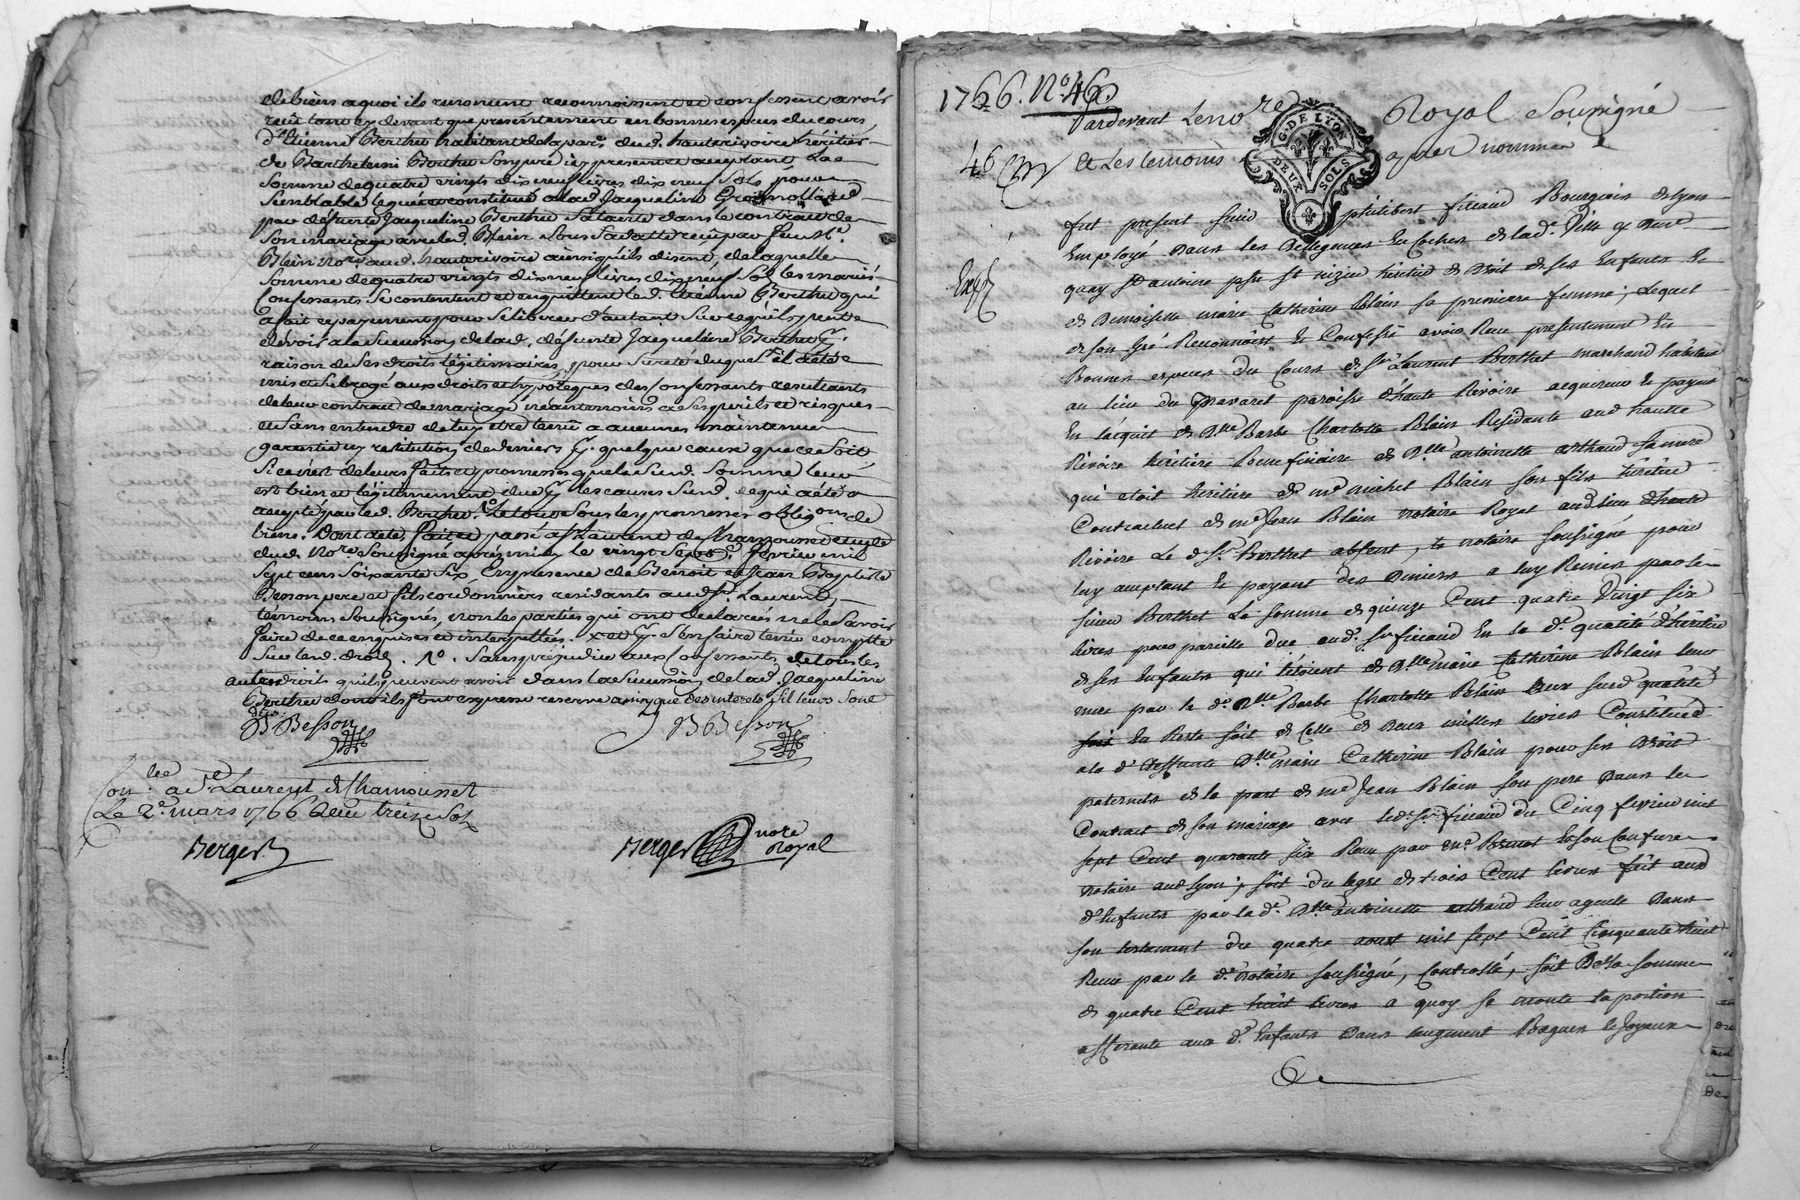 de biens a quoi ils renoncent reconnoissent et confessent avoir
recu tout cy devant que presentement en bonnes especes du cours
d'Etienne Berthet habitant de la par. dud. hauterivoire héritier
de Barthelemi Berthet son pere icy present et acceptant La
somme de quatre vingts dix neuf livres dix neuf sols pour
semblable leguée et constitué a lad. Jaqueline
par défunte Jaqueline Berthet sa tante dans le contrat de
son mariage avec led. Blein sous sa datte recu par feu Me.
Blein Nore. aud. hauterivoire ainsi qu'ils disent, de laquelle
somme de quatre vingts dix neuf livres dix neuf sols les mariés
confessants se contentent et en quittent led. Etienne Berthet qui
a fait ce payement pour se liberer d'autant sur ce qu'il
devoir a la succession de lad. défunte Jaqueline Berthet
raison de ses droits légitimaires, pour sureté duquel il a été
mis et subrogé aux droits et hypoteques des confessants resultants
de leur contrat de mariage néantmoins a ses perils et risques
et sans entendre de luy etre tenu a aucunes maintenue
garentie ny restitution de deniers quelque cause que ce soit
si ce n'est de leurs faits et promesses que la susd. somme leur
est bien et légitimement due les causes susd. ce qui a été
accepté par led. Berthet. Le tout sous les promesses obligons de
biens. Dont acte fait et passé a St Laurent de Chamousset etude
dud. Nore. soussigné après midy le vingt fevrier mil
sept cens soixante six En presence de Benoit et Jean Baptiste
Besson pere et fils cordonniers residants aud. St. Laurent,
témoins soussignés, non les parties qui ont declarés ne le sçavoir
faire de ce enquises et interpellées. s'en faire tenir compte
sur lesd. droits. Sans préjudice aux confessants de tous les
autres droits qu'ils peuvent avoir dans la succession de lad. Jaqueline
Berthet dont ils font expresse reserve ainsy que des interets s'il leurs sont
dus
B Besson JB Besson
Conlee a St. Laurent de Chamousset
Le 2e. mars 1766 Recu treize sols
Berger Berger nore
Royal
1766. No. 46.
Pardevant Le nore Royal Soussigné
46 Et Les temoins apres nommes
G. DE LYON
DEUX SOLS
Exp
fut present sieur philibert ficaud Bourgeois de Lyon
Employé dans les de lad. Ville y dem.t
quay St antoine psse St nizier héritier de droit de ses Enfants &
de Demoiselle marie Catherine Blain sa premiere femme; Lequel
de son gré Reconnoist & Confesse avoir Reçu presentement En
Bonnes especes du Cours de Sr. Laurent Berthet marchand habitant
au lieu du paroisse d'haute Rivoire acquereur & payant
En l'acquit de Dlle Barbe Charlotte Blain Residante aud haute
Rivoire heritiere Beneficiaire de Dlle antoinette arthaud sa mere
qui etoit heritiere de me michel Blain son fils heritier
Contractuel de me Jean Blain notaire Royal aud lieu d'haute
Rivoire Le d. Sr. Berthet absent, le notaire soussigné pour
luy acceptant & payant des deniers a luy Remis par le
sieur Berthet La somme de quinze Cent quatre Vingt six
livres pour pareille due aud. Sr ficaud En la d. qualité d'héritier
de ses Enfants qui l'étoient de Dlle marie Catherine Blain leur
mere par la d. Dlle Barbe Charlotte Blain aux susd qualités
En Reste soit de Celle de deux milles livres Constituée
a la d. deffunte Dlle marie Catherine Blain pour ses droits
paternels de la part de me Jean Blain son pere dans le
Contrat de son mariage avec led. Sr ficaud du Cinq fevrier mil
sept Cent quarante six Reçu par me Brenot & son Confrere
notaire aud Lyon; soit du legs de trois Cent livres fait aux
d. Enfants par la d. Dlle antoinette arthaud leur ayeule dans
son testament du quatre aoust mil sept Cent Cinquante huit
Recu par le d. notaire soussigné, Controllé, soit De la somme
de quatre Cent huit livres a quoy se monte la portion
afferante aux d. Enfants dans l'augment Bagues & Joyaux